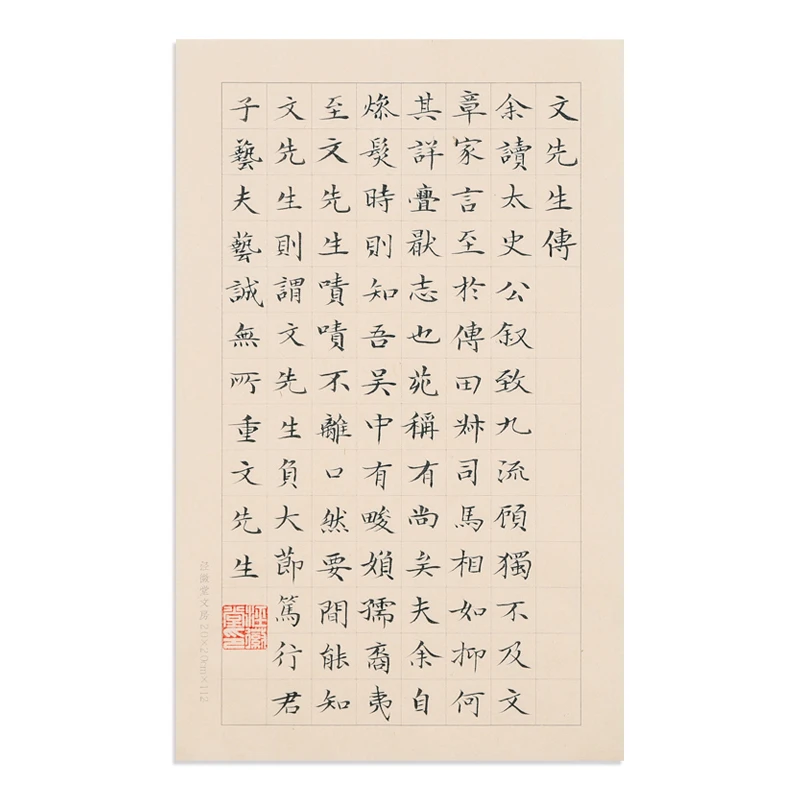 文先生傳
余讀太史公叙致九流頋獨不及文
章家言至於傳田叔司馬相如抑何
其詳疊猒志也苑稱有尚矣夫余自
燥髮時則知吾吴中有畯媍孺裔夷
至文先生嘖嘖不離口然要間能知
文先生則謂文先生負大節篤行君
子藝夫藝誠無所重文先生
徽堂文房20×20m×112